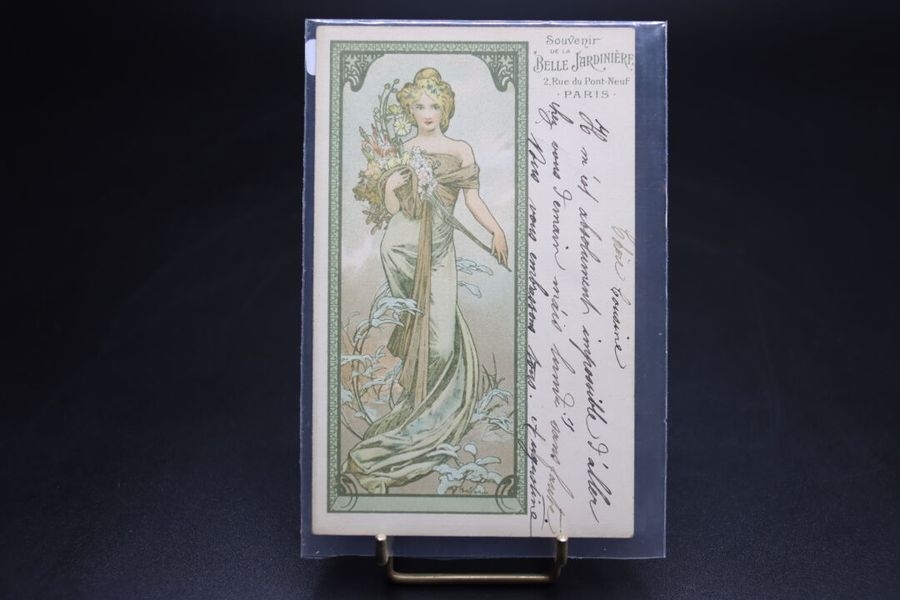 Souvenir
DE LA
BELLE JARDINIÈRE
2, Rue du Pont-Neuf
· PARIS ·
Chère Cousine
Il m'est absolument impossible d'aller
chez vous demain mais lundi sans faute.
Nous vous embrassons tous.